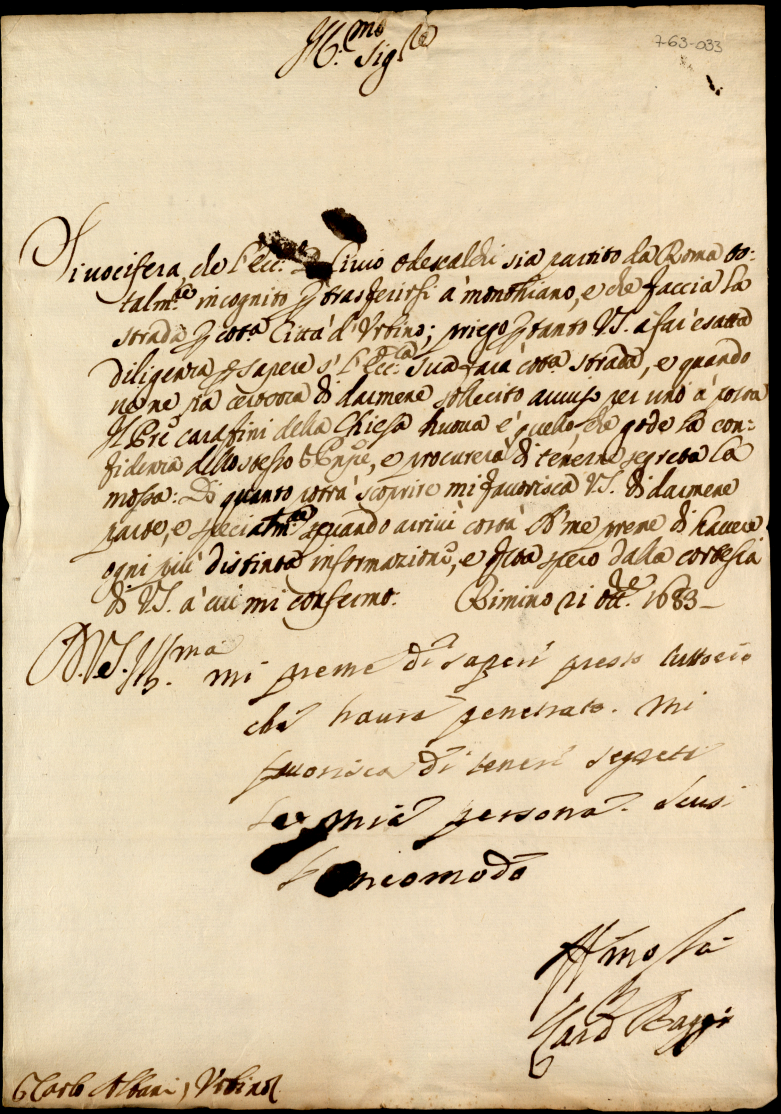 Ill.mo Sig.re
7-63-033
Si vocifera, che l'Ecc.mo D. Livio Odescalchi sia partito da Roma to:
talm.te incognito p trasferirsi à Monthiano, e che faccia la
strada p cot.a Città d'Urbino; priego p tanto VS. à far esatta
diligenza p sapere s' l'Ecc.za Sua farà cot.a strada, e quando
ne ne sia certezza di darmene sollecito avviso per uno à posta
Il Pre Carafini della Chiesa nuova è quello, che gode la con:
fidenza dello stesso, e procurerà di tenerne segreta la
mossa: Di quanto potrà scoprire mi favorisca VS. di darmene
parte, e specialm.te quando arrivi costà ch'me preme di havere
ogni più distinta informazione, e spero dalla cortesia
di VS. à cui mi confermo. Rimino 21 Ott.re 1683
D. V.S. Ill.ma mi preme di saperi presto tuttociò
che haurà penetrato. Mi
favorisca di teneri segreti
la mia persona. Scusi
l'incomodo
Aff.mo
Card
S Carlo Albani, Urbino